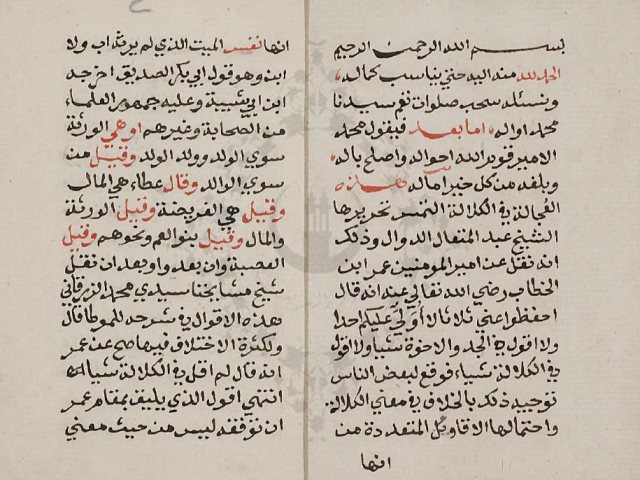 بسم الله الرحمن الرحيم
الحمد لله منه اليه حتي يناسب كماله
ونسئله سحب صلوات تغم سيدنا
محمد او اله، اما بعد فيقول محمد
الامير قوم الله احواله واصلح باله
وبلغه من كل خير اماله هذه
العجالة في الكلالة التمس تحريرها
الشيخ عبد المتعال الدوال وذلك
انه نقل عن امير المومنين عمر ابن
الخطاب رضي الله تعالي عنه انه قال
احفظوا عني ثلاثا لا اولي عليكم احدا
ولا اقول في الجد والاخوة شيا ولا اقول
في الكلالة شياء فوقع لبعض الناس
توجيه ذلك بالخلاف في معني الكلالة
واحتمالها الاقاويل المتعددة من
انها
انها نفس الميت الذي لم يرثه اب ولا
ابن وهو قول ابي بكر الصديق اخرجه
ابن ابي شيبة وعليه جمهور العلماء
من الصحابة وغيرهم او هي الورثة
سوي الولد وولد الولد وقيل من
سوي الوالد وقال عطاء هي المال
وقيل هي الفريضة وقيل الورثة
والمال وقيل بنو العم ونحوهم وقيل
العصبة وان بعدوا وبعد ان نقل
شيخ مشايخنا سيدي محمد الزرقاني
هذه الاقوال في شرحه للموطا قال
ولكثرة الاختلاف فيها صح عن عمر
انه قال لم اقل في الكلالة شيا اه
انتهي اقول الذي يليق بمقام عمر
ان توقفه ليس من حيث معني